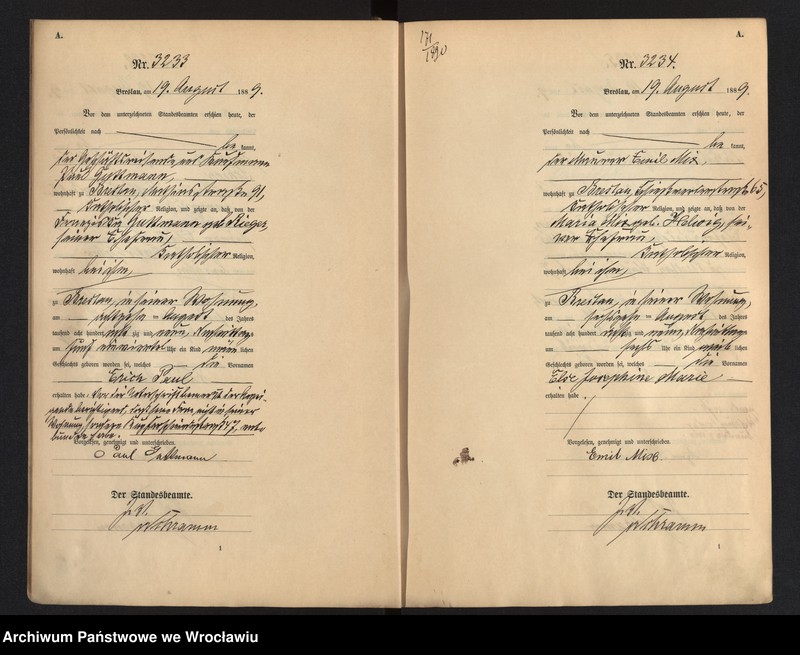 A.
Nr. 3233
Breslau, am 19. August 1889.
Vor dem unterzeichneten Standesbeamten erschien heute, der
Persönlichkeit nach
be kannt,
der Geschäftsreisende und Kaufmann
Paul Guttmann,
wohnhaft zu Breslau, Matthiasstraße 91,
katholischer Religion, und zeigte an, daß von der
Guttmann geb. Rieger,
seiner Ehefrau,
katholischer Religion,
wohnhaft bei ihm,
zu Breslau, in seiner Wohnung,
am August des Jahres
tausend acht hundert acht zig und neun, Nachmittags
um fünf Uhr ein Kind männ lichen
Geschlechts geboren worden sei, welches die Vornamen
Erich Paul
erhalten habe. Vor der Unterschrift
in seiner
Wohnung, sondern
habe.
Vorgelesen, genehmigt und unterschrieben
Paul Guttmann
Der Standesbeamte.
J. V.
Schramm
1
171
/1890
A.
Nr. 3234.
Breslau, am 19. August 1889.
Vor dem unterzeichneten Standesbeamten erschien heute, der
Persönlichkeit nach
be kannt,
der Maurer Emil Mix,
wohnhaft zu Breslau, 65,
katholischer Religion, und zeigte an, daß von der
Maria Mix geb. Helwig, sei-
ner Ehefrau,
katholischer Religion,
wohnhaft bei ihm,
zu Breslau, in seiner Wohnung,
am August des Jahres
tausend acht hundert acht zig und neun, Vormittags
um sechs Uhr ein Kind weib lichen
Geschlechts geboren worden sei, welches die Vornamen
Else Josephine Marie
erhalten habe.
Vorgelesen, genehmigt und unterschrieben
Emil Mix.
Der Standesbeamte.
J. V.
Schramm
1
Archiwum Państwowe we Wrocławiu